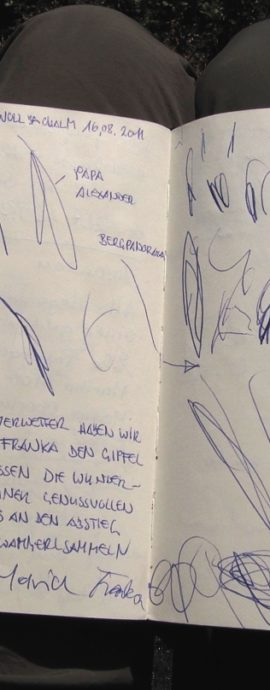 16.08.2011
PAPA
ALEXANDER
BERGPANORAMA
ERWETTER HABEN WIR
FRANKA DEN GIPFEL
SSEN DIE WUNDER-
EINER GENUSSVOLLEN
S AN DEN ABSTIEG
WAMMERLSAMMELN
Maria Franka